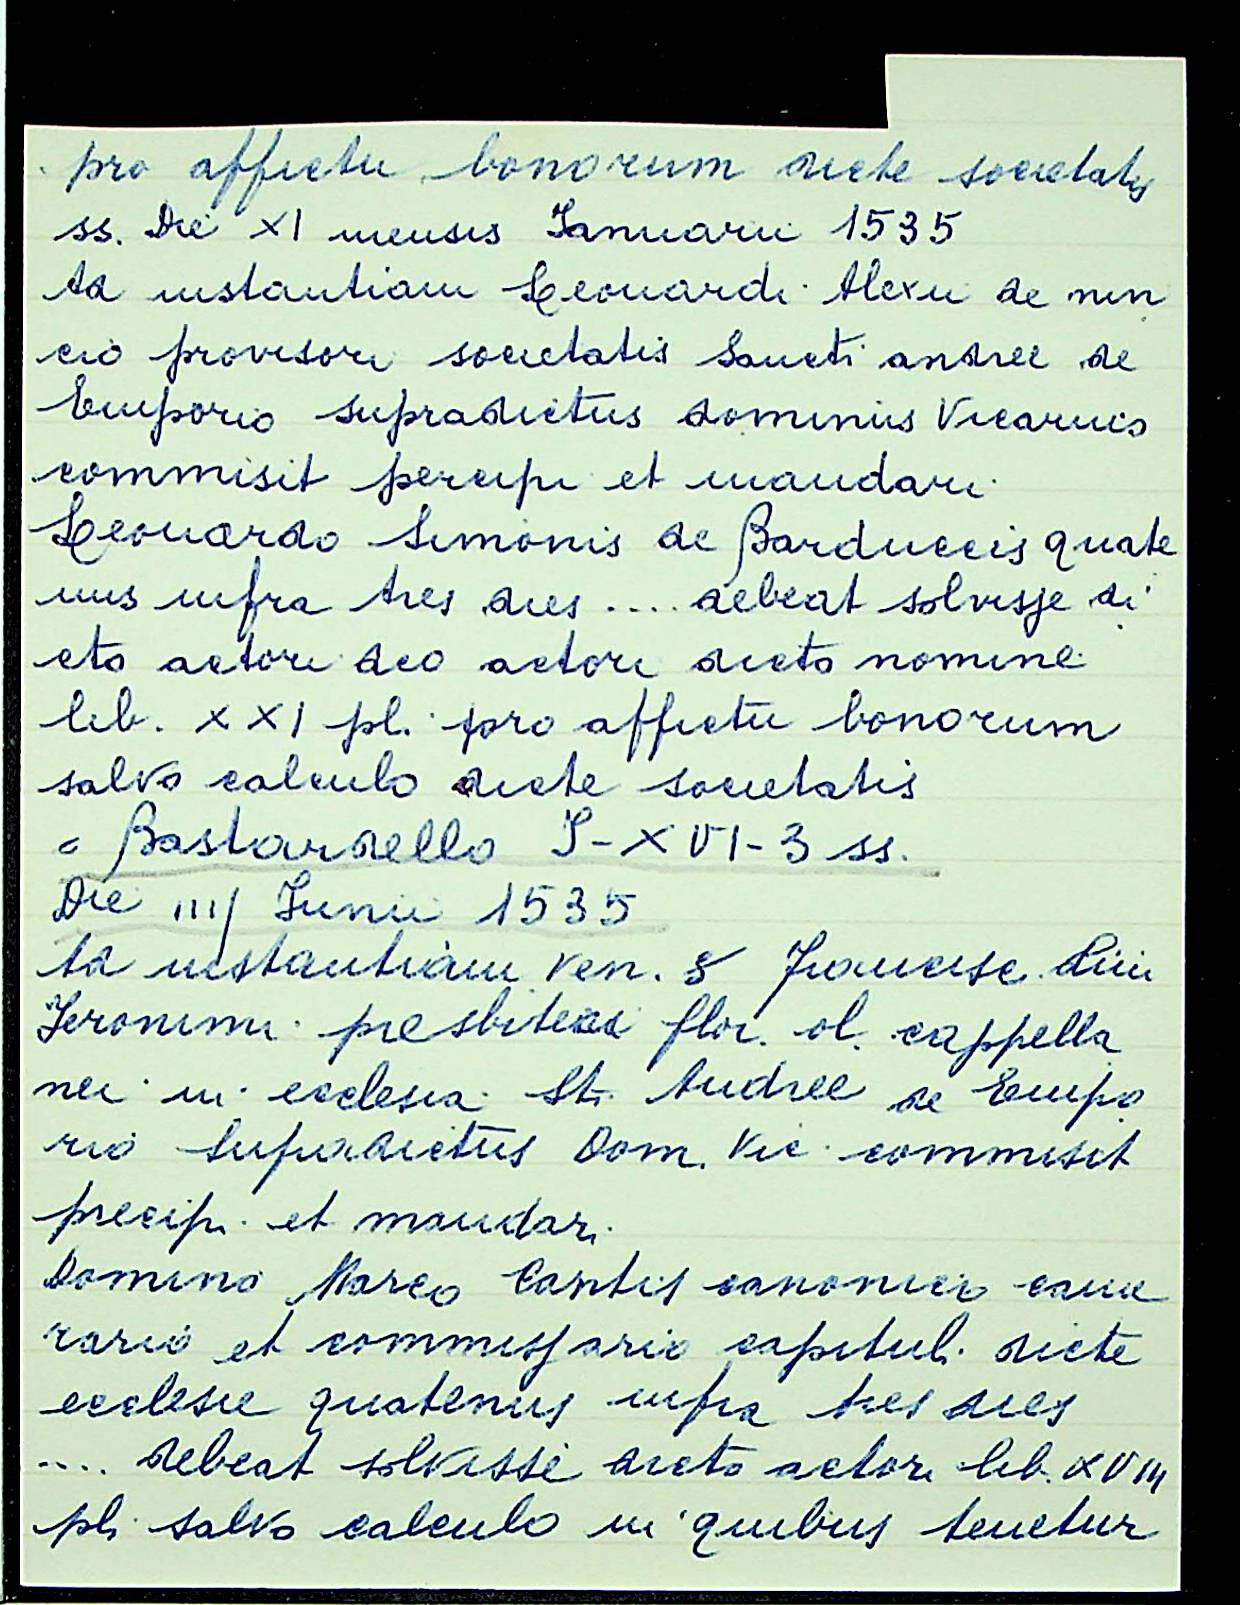 pro affictu bonorum dicte societatis
ss. Die XI mensis Januarii 1535
Ad instantiam Leonardi Alexii de nin
cio provisori societatis Sancti andree de
Emporio supradictus dominus Vicarius
commisit percipi et mandari
Leonardo Simonis de Barduccis quate
nus infra tres dies .... debeat solvisse di
cto actori deo actori dicto nomine
lib. XXI pl. pro affictu bonorum
salvo calculo dicte societatis
c Bastardello I-XVI-3 ss.
Die IIIJ Junii 1535
Ad instantiam ven. S Francisc.
Jeronimi presbiteri flor. ol. cappella
nei in ecclesia St. Andree de Empo
rio Supradictus Dom. Vic commisit
precip. et mandar.
Domino Marco Cantis canonico came
rario et commissario capituli dicte
ecclesie quatenus infra tres dies
.... debeat solvisse dicto actori lib. XVIII
pl. salvo calculo in quibus tenetur